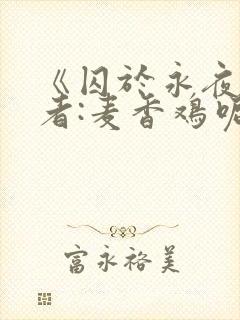 《囚於永夜
者:麦香鸡呢
富永裕美